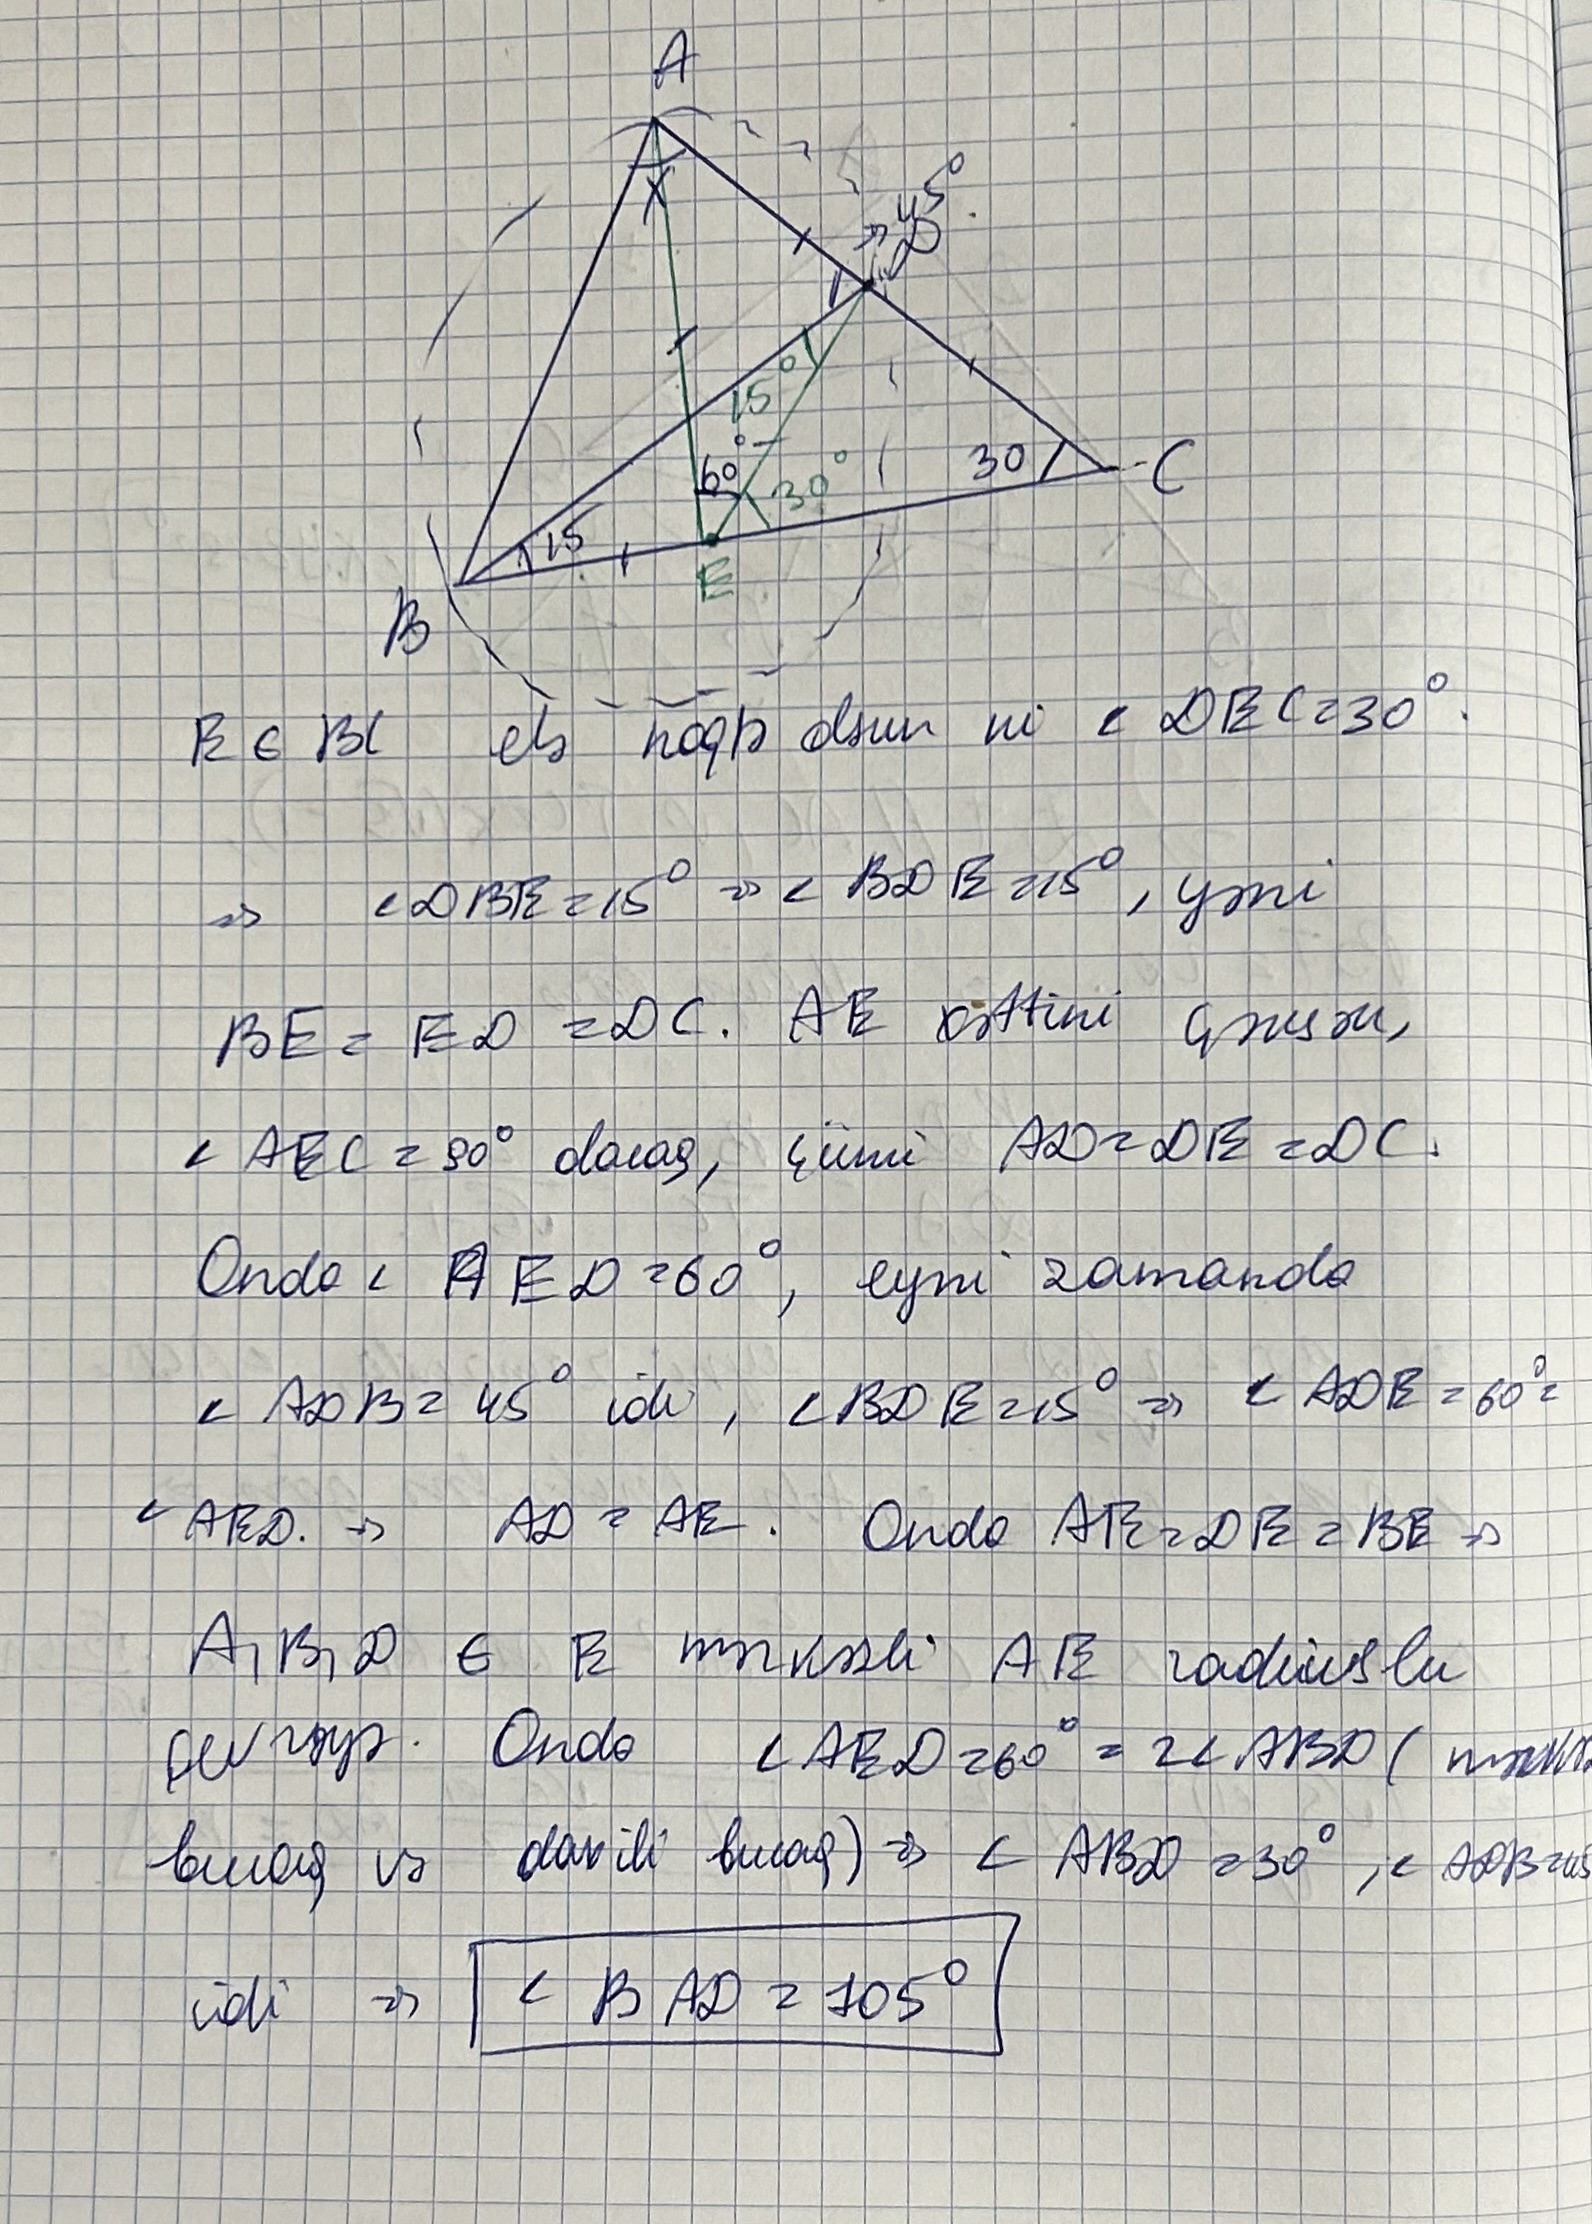 A
X
45°
D
15°
60°
30°
30
C
15
E
B
E ∈ BC elə nöqtə olsun ki ∠ DEC = 30°.
⇒ ∠DBE = 15° ⇒ ∠ BDE = 15°, yəni
BE = ED = DC. AE xəttini çəksək,
∠ AEC = 90° olacaq, çünki AD = DE = DC.
Onda ∠ AED = 60°, eyni zamanda
∠ ADB = 45° idi, ∠BDE = 15° ⇒ ∠ ADE = 60° =
∠ AED. → AD = AE. Onda AE = DE = BE →
A, B, D ∈ E mərkəzli AE radiuslu
çevrəyə. Onda ∠AED = 60° = 2∠ABD (
bucaq və daxili bucaq) ⇒ ∠ ABD = 30°, ∠ ADB = 45
idi ⇒ ∠ BAD = 105°